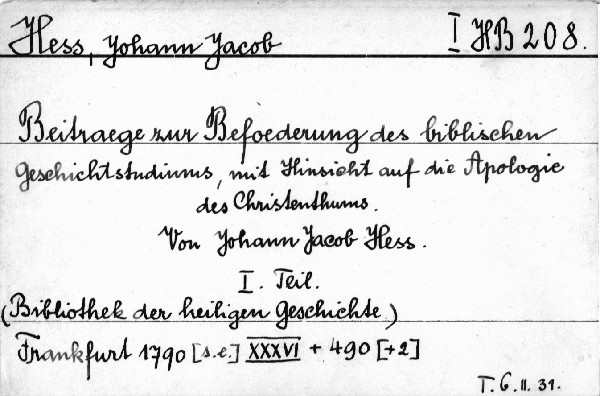 Hess, Johann Jacob I HB 208.
Beitraege zur Befoederung des biblischen
Geschichtstudiums, mit Hinsicht auf die Apologie
des Christenthums.
Von Johann Jacob Hess.
I. Teil.
(Bibliothek der heiligen Geschichte)
Frankfurt 1790 [s.e.] XXXVI + 490 [+2]
T. 6. II. 31.